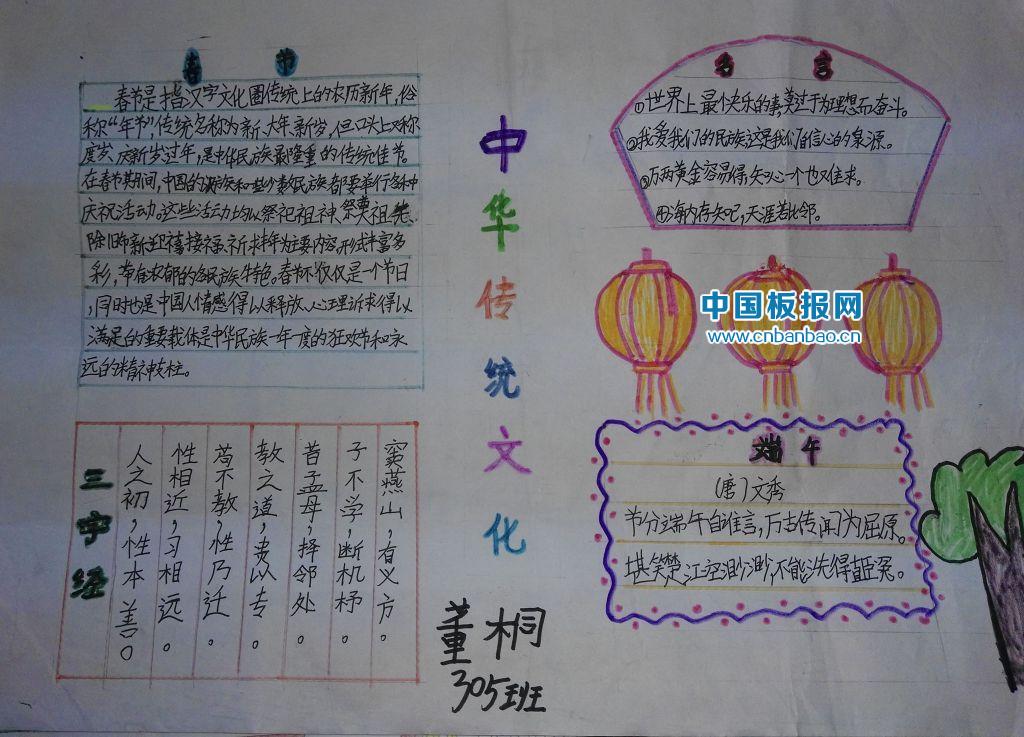 春节
春节是指汉字文化圈传统上的农历新年,俗
称“年节”,传统名称为新、大年、新岁,但口头上又称
度岁、庆新岁过年,是中华民族最隆重的传统佳节。
在春节期间,中国的汉族和些少数民族都要举行各种
庆祝活动。这些活动均以祭祀祖神、祭奠祖先、
除旧布新迎禧接福、祈求丰年为主要内容形式丰富多
彩,带有浓郁的各民族特色。春节不仅仅是一个节日
,同时也是中国人情感得以释放、心理诉求得以
满足的重要载体是中华民族一年一度的狂欢节和永
远的精神支柱。
中华传统文化
名言
①世界上最快乐的事,莫过于为理想而奋斗。
②我爱我们的民族这是我们自信心的泉源。
③万两黄金容易得,知心一个也难求。
④海内存知己,天涯若比邻。
中国板报网
www.cnbanbao.cn
三字经
人之初,性本善。
性相近,习相远。
苟不教,性乃迁。
教之道,贵以专。
昔孟母,择邻处。
子不学,断机杼。
窦燕山,有义方。
端午
(唐)文秀
节分端午自谁言,万古传闻为屈原。
堪笑楚江空渺渺,不能洗得直臣冤。
董桐
305班